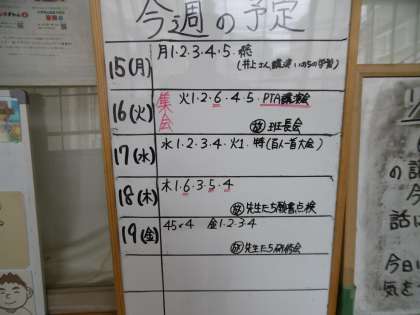 今週の予定
15(月) 月1・2・3・4・5・総
(井上さん講演 いのちの学習)
16(火) 集会 火1・2・6・4・5 PTA講演会
放 班長会
17(水) 水1・2・3・4・火1・特(百人一首大会)
18(木) 木1・6・3・5・4
放 先生たち願書点検
19(金) 45×4 金1・2・3・4
放 先生たち研修会
の記
今
話し
今日
気を